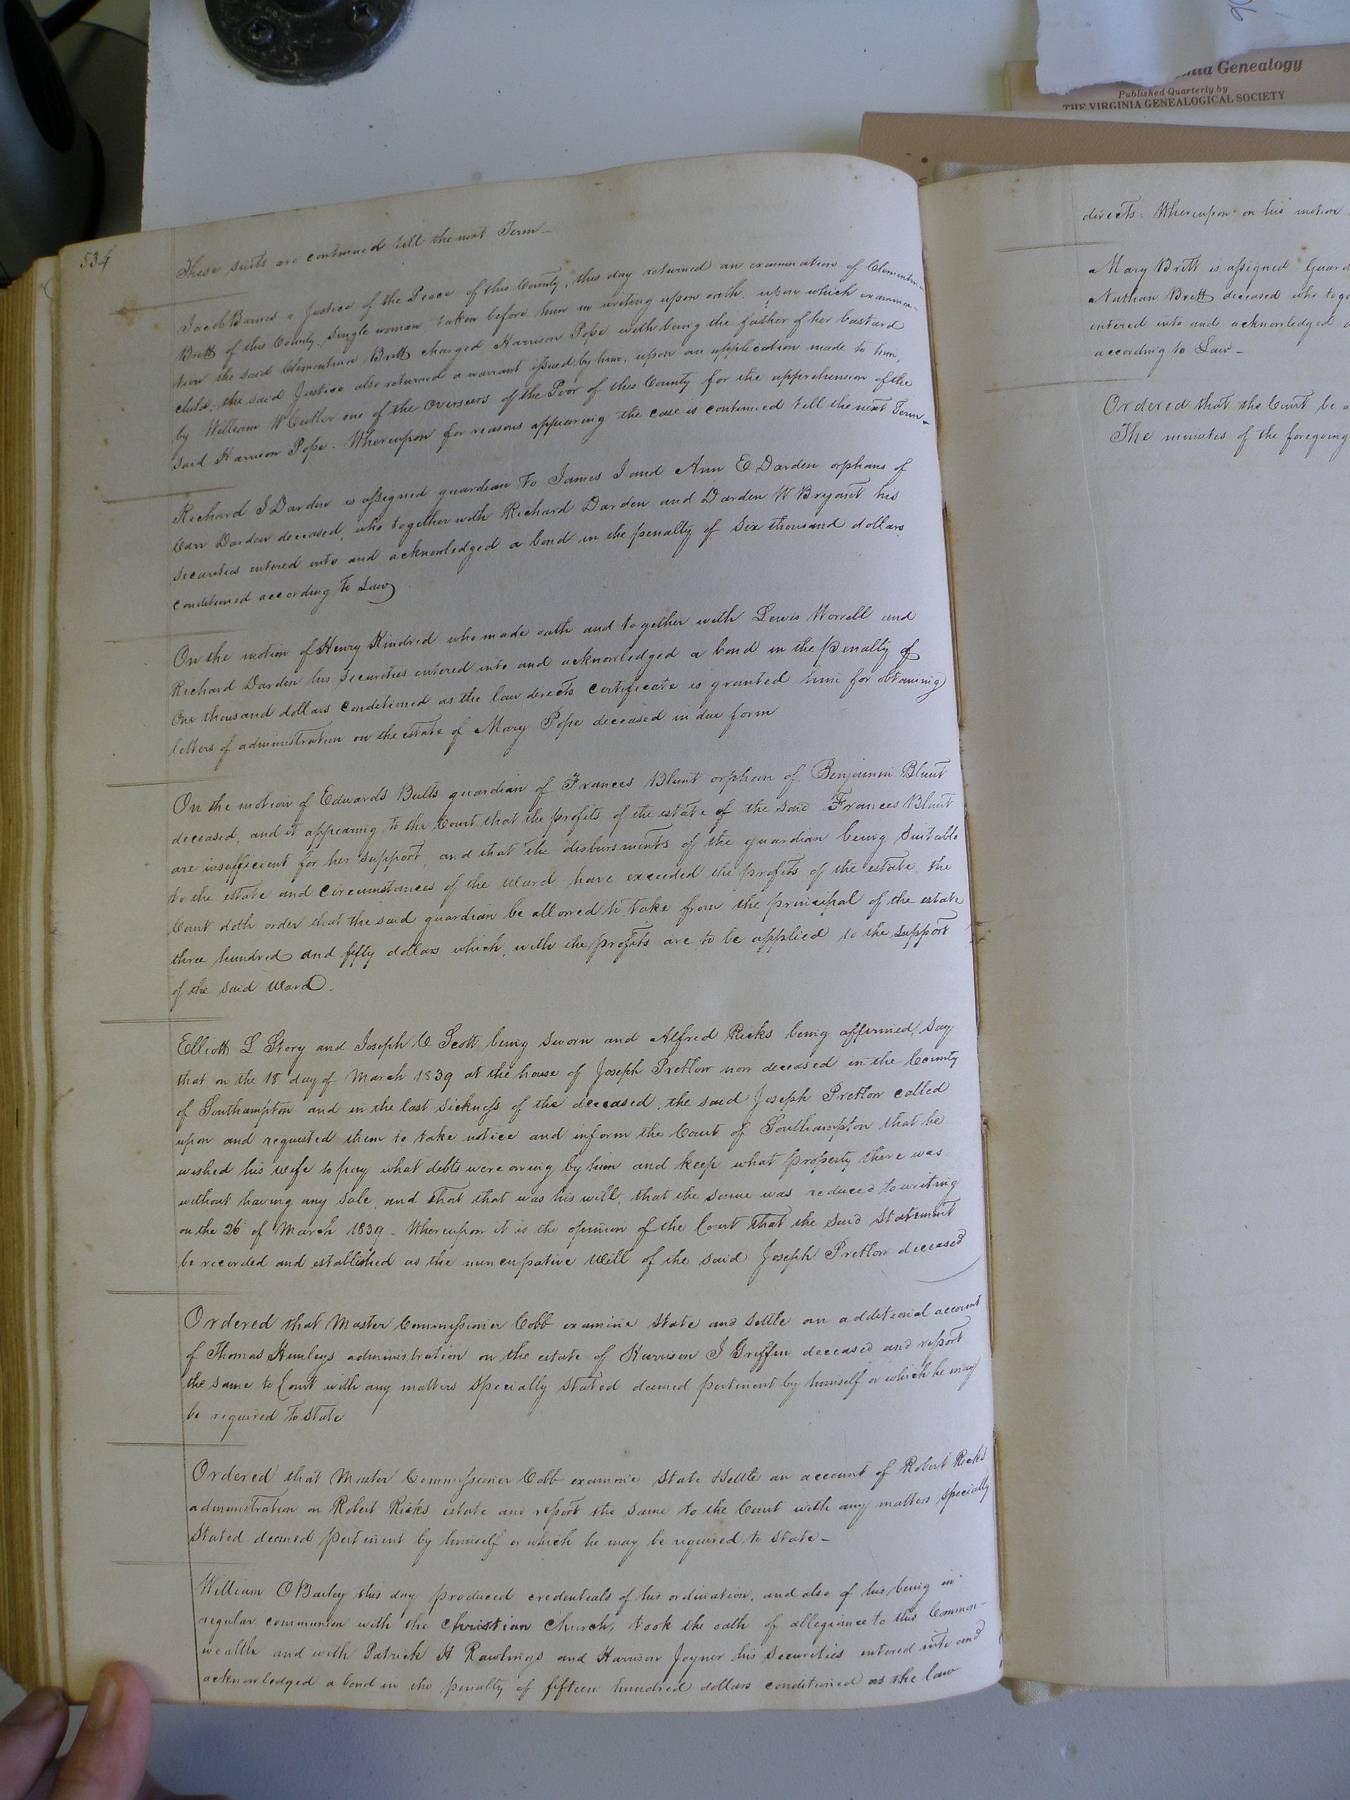 nia Genealogy
Published Quarterly by
THE VIRGINIA GENEALOGICAL SOCIETY
534
These suits are continued till the next Term
Jacob Barnes a Justice of the Peace of this County, this day returned an examination of Clementina
Britt of this County, Single woman taken before him in writing upon oath, upon which examina-
tion the said Clementina Britt charged Harrison Pope with being the father of her bastard
child; the said Justice also returned a warrant issued by him, upon an application made to him,
by William W Cutler one of the Overseers of the Poor of this County for the apprehension of the
said Harrison Pope. Whereupon for reasons appearing the case is continued till the next Term-
Richard J Darden is assigned guardian to James J and Ann E Darden orphans of
Carr Darden deceased, who together with Richard Darden and Darden W Bryant his
securities entered into and acknowledged a bond in the penalty of Six thousand dollars
conditioned according to Law
On the motion of Henry Kindred who made oath and together with Lewis Worrell and
Richard Darden his securities entered into and acknowledged a bond in the penalty of
One thousand dollars conditioned as the law directs certificate is granted him for obtaining
letters of administration on the estate of Mary Pope deceased in due form
On the motion of Edward Butts guardian of Frances Blunt orphan of Benjamin Blunt
deceased, and it appearing to the Court that the profits of the estate of the said Frances Blunt
are insufficient for her support, and that the disbursments of the guardian being Suitable
to the estate and circumstances of the ward have exceeded the profits of the estate, the
Court doth order that the said guardian be allowed to take from the principal of the estate
three hundred and fifty dollars which, with the profits are to be applied to the support
of the said ward.
Elliott L Story and Joseph C Scott being sworn and Alfred Ricks being affirmed, say
that on the 18 day of March 1839 at the house of Joseph Pretlow now deceased in the County
of Southampton and in the last sickness of the deceased, the said Joseph Pretlow called
upon and requested them to take notice and inform the Court of Southampton that he
wished his wife to pay what debts were owing by him and keep what property there was
without having any sale, and that that was his will, that the same was reduced to writing
on the 26 of March 1839 - Whereupon it is the opinion of the Court that the said statement
be recorded and established as the nuncupative Will of the said Joseph Pretlow deceased
Ordered that Master Commissioner Cobb examine state and settle an additional account
of Thomas Hunleys administration on the estate of Harrison J Griffin deceased and report
the same to Court with any matters specially stated deemed pertinent by himself or which he may
be required to state
Ordered that Master Commissioner Cobb examine state & settle an account of Robert Ricks
administration on Robert Ricks estate and report the same to the Court with any matters specially
stated deemed pertinent by himself or which he may be required to state -
William O Bailey this day produced credentials of his ordination, and also of his being in
regular communion with the Christian Church, took the oath of allegiance to this Common-
wealth and with Patrick H Rawlings and Harrison Joyner his securities entered into and
acknowledged a bond in the penalty of fifteen hundred dollars conditioned as the law
directs. Whereupon on his motion
Mary Britt is assigned Guard
Nathan Britt deceased who toge
entered into and acknowledged a
according to Law -
Ordered that the Court be a
The minutes of the foregoing